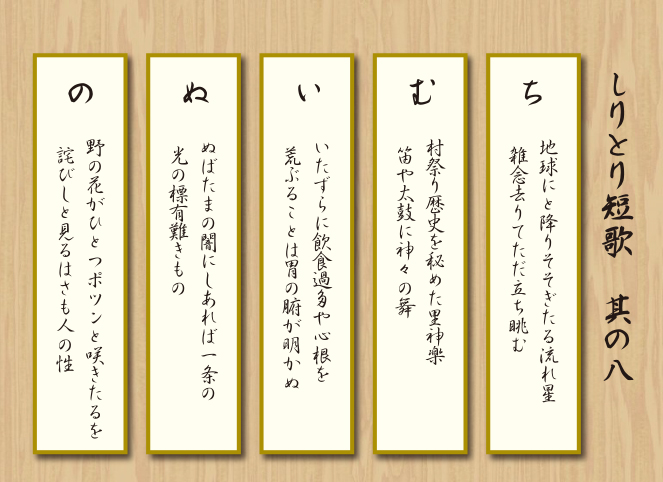 しりとり短歌　其の八
ち
地球にと降りそそぎたる流れ星
雑念去りてただ立ち眺む
む
村祭り歴史を秘めた里神楽
笛や太鼓に神々の舞
い
いたずらに飲食過多や心根を
荒ぶることは胃の腑が明かぬ
ぬ
ぬばたまの闇にしあれば一条の
光の標有難きもの
の
野の花がひとつポツンと咲きたるを
詫びしと見るはさも人の性